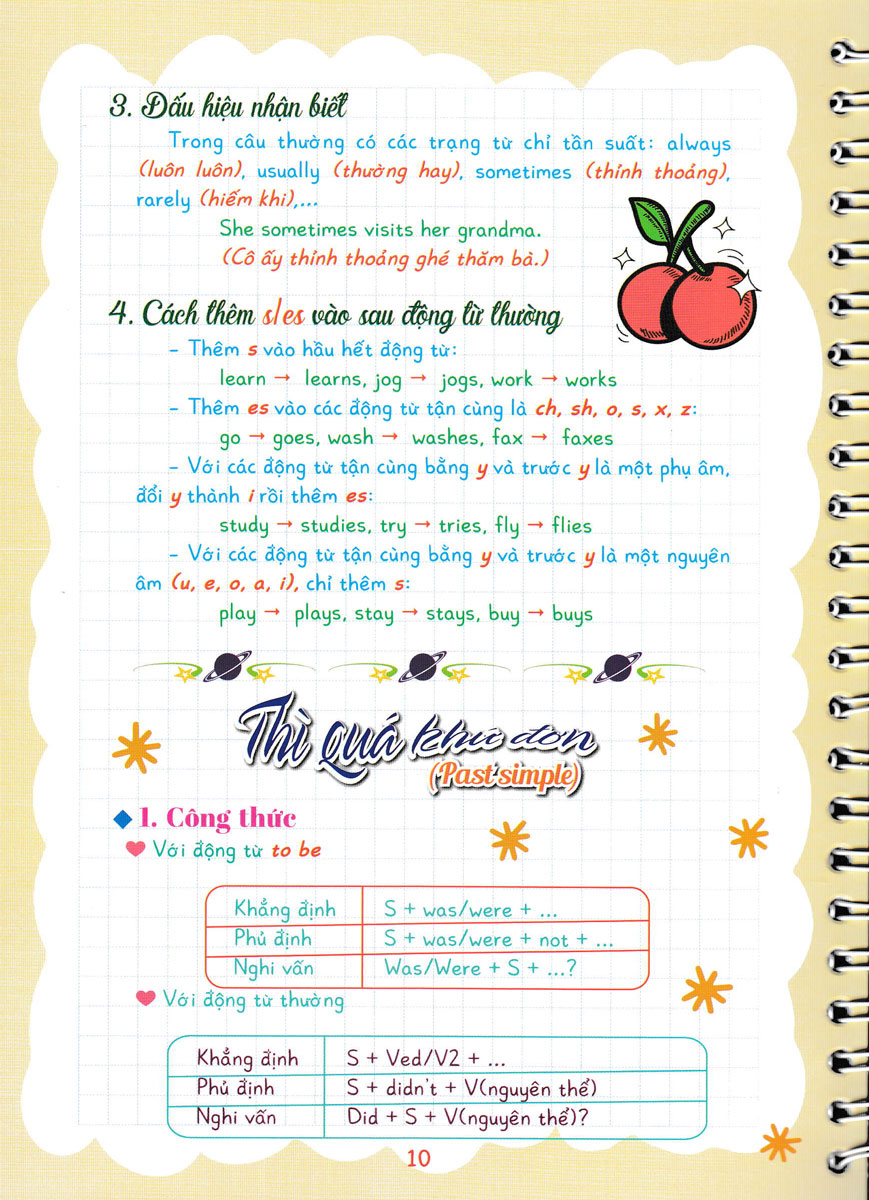 3. Dấu hiệu nhận biết
Trong câu thường có các trạng từ chỉ tần suất: always
(luôn luôn), usually (thường hay), sometimes (thỉnh thoảng),
rarely (hiếm khi),...
She sometimes visits her grandma.
(Cô ấy thỉnh thoảng ghé thăm bà.)
4. Cách thêm s/es vào sau động từ thường
– Thêm s vào hầu hết động từ:
learn → learns, jog → jogs, work → works
– Thêm es vào các động từ tận cùng là ch, sh, o, s, x, z:
go → goes, wash → washes, fax → faxes
– Với các động từ tận cùng bằng y và trước y là một phụ âm,
đổi y thành i rồi thêm es:
study → studies, try → tries, fly → flies
– Với các động từ tận cùng bằng y và trước y là một nguyên
âm (u, e, o, a, i), chỉ thêm s:
play → plays, stay → stays, buy → buys
Thì quá khứ đơn
(Past simple)
1. Công thức
Với động từ to be
Khẳng định S + was/were + ...
Phủ định S + was/were + not + ...
Nghi vấn Was/Were + S + ...?
Với động từ thường
Khẳng định S + Ved/V2 + ...
Phủ định S + didn't + V(nguyên thể)
Nghi vấn Did + S + V(nguyên thể)?
10